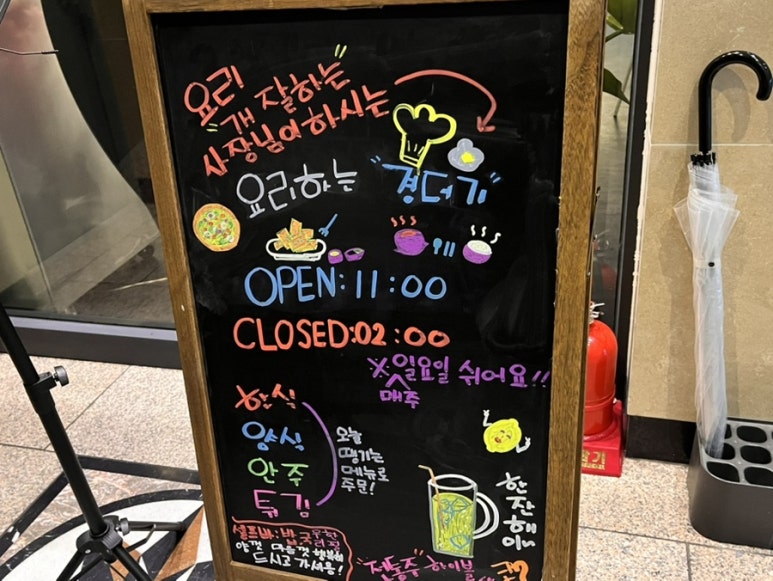 요리
"개 잘하는"
사장님이 하시는
요리하는 "경더기"
OPEN:11:00
CLOSED:02:00
※일요일 쉬어요!!
매주
한식
양식
안주
튀김
오늘
땡기는
메뉴로
주문!
한잔해
셀프바:밥
마음껏
드시고 가세요!
전통주 하이볼